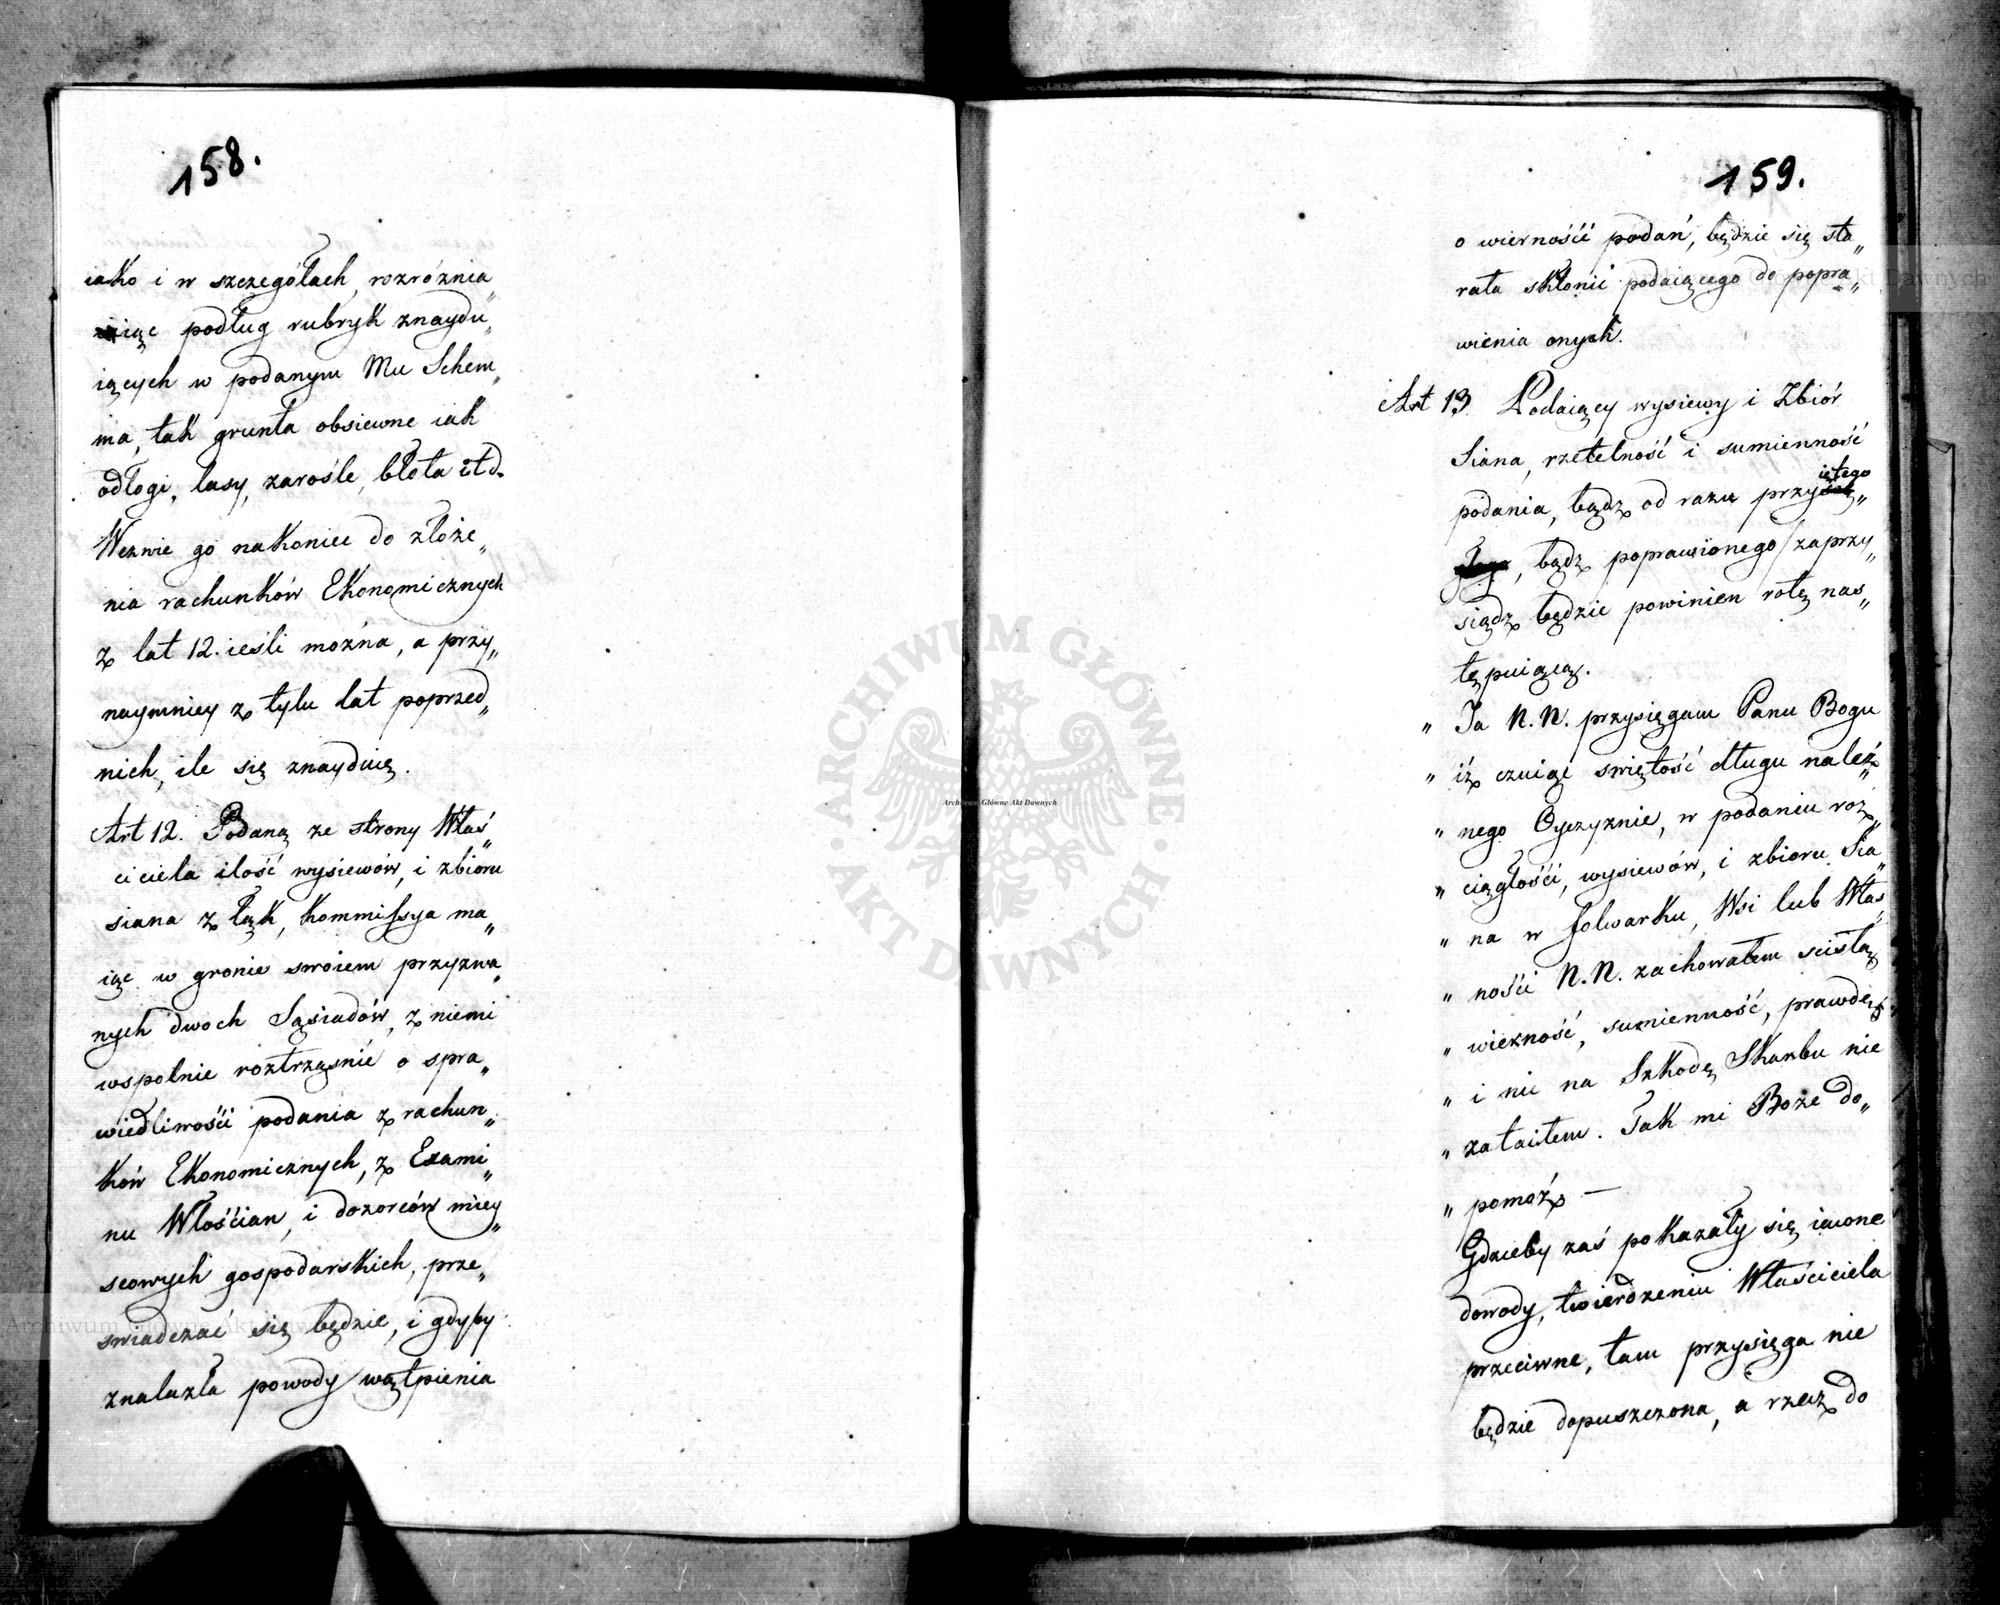 158.
iako i w szczegółach, rozróżnia„
iąc podług rubryk znaydu„
iących w podanym Mu Schem„
ma, tak grunta obsiewne iak
odłogi, lasy, zarośle, błota itd.
Wezwie go nakoniec do złoże„
nia rachunków Ekonomicznych
z lat 12. ieśli można, a przy„
naymniey z tylu lat poprzed„
nich, ile się znayduię.
Art 12. Podaną ze strony Właś„
ciciela ilość wysiewów, i zbioru
siana z łąk, Kommissya ma„
iąc w gronie swoiem przyzwa„
nych dwoch Sąsiadów, z niemi
wspolnie roztrząsnie o spra„
wiedliwości podania z rachun„
ków Ekonomicznych, z Exami„
nu Włościan, i dozorców miey„
scowych gospodarskich, prze„
swiadczać się będzie, i gdyby
znalazła powody wątpienia
159.
o wierności podań, będzie się sta„
rała skłonić podaiącego do popra„
wienia onych.
Art 13. Podaiący wysiewy i Zbiór
Siana, rzetelność i sumienność
podania, bądz od razu przyiętego
, bądz poprawionego, zaprzy„
siądz będzie powinien rotę nas„
tępuiącą.
„ Ja N. N. przysięgam Panu Bogu
„ iż czuiąc swiętość długu należ„
„ nego Oyczyznie, w podaniu roz„
„ ciągłości, wysiewów, i zbioru Sia„
„ na w folwarku, Wsi lub Włas„
„ności N. N. zachowałem scisłą
„ wierność, sumienność, prawdę,
„ i nic na Szkodę Skarbu nie
„ zataiłem. Tak mi Boże do„
„ pomoż —
Gdzieby zaś pokazały się iawne
dowody, twierdzeniu Właściciela
przeciwne, tam przysięga nie
będzie dopuszczona, a rzecz do
ARCHIWUM GŁÓWNE AKT DAWNYCH
Archiwum Główne Akt Dawnych